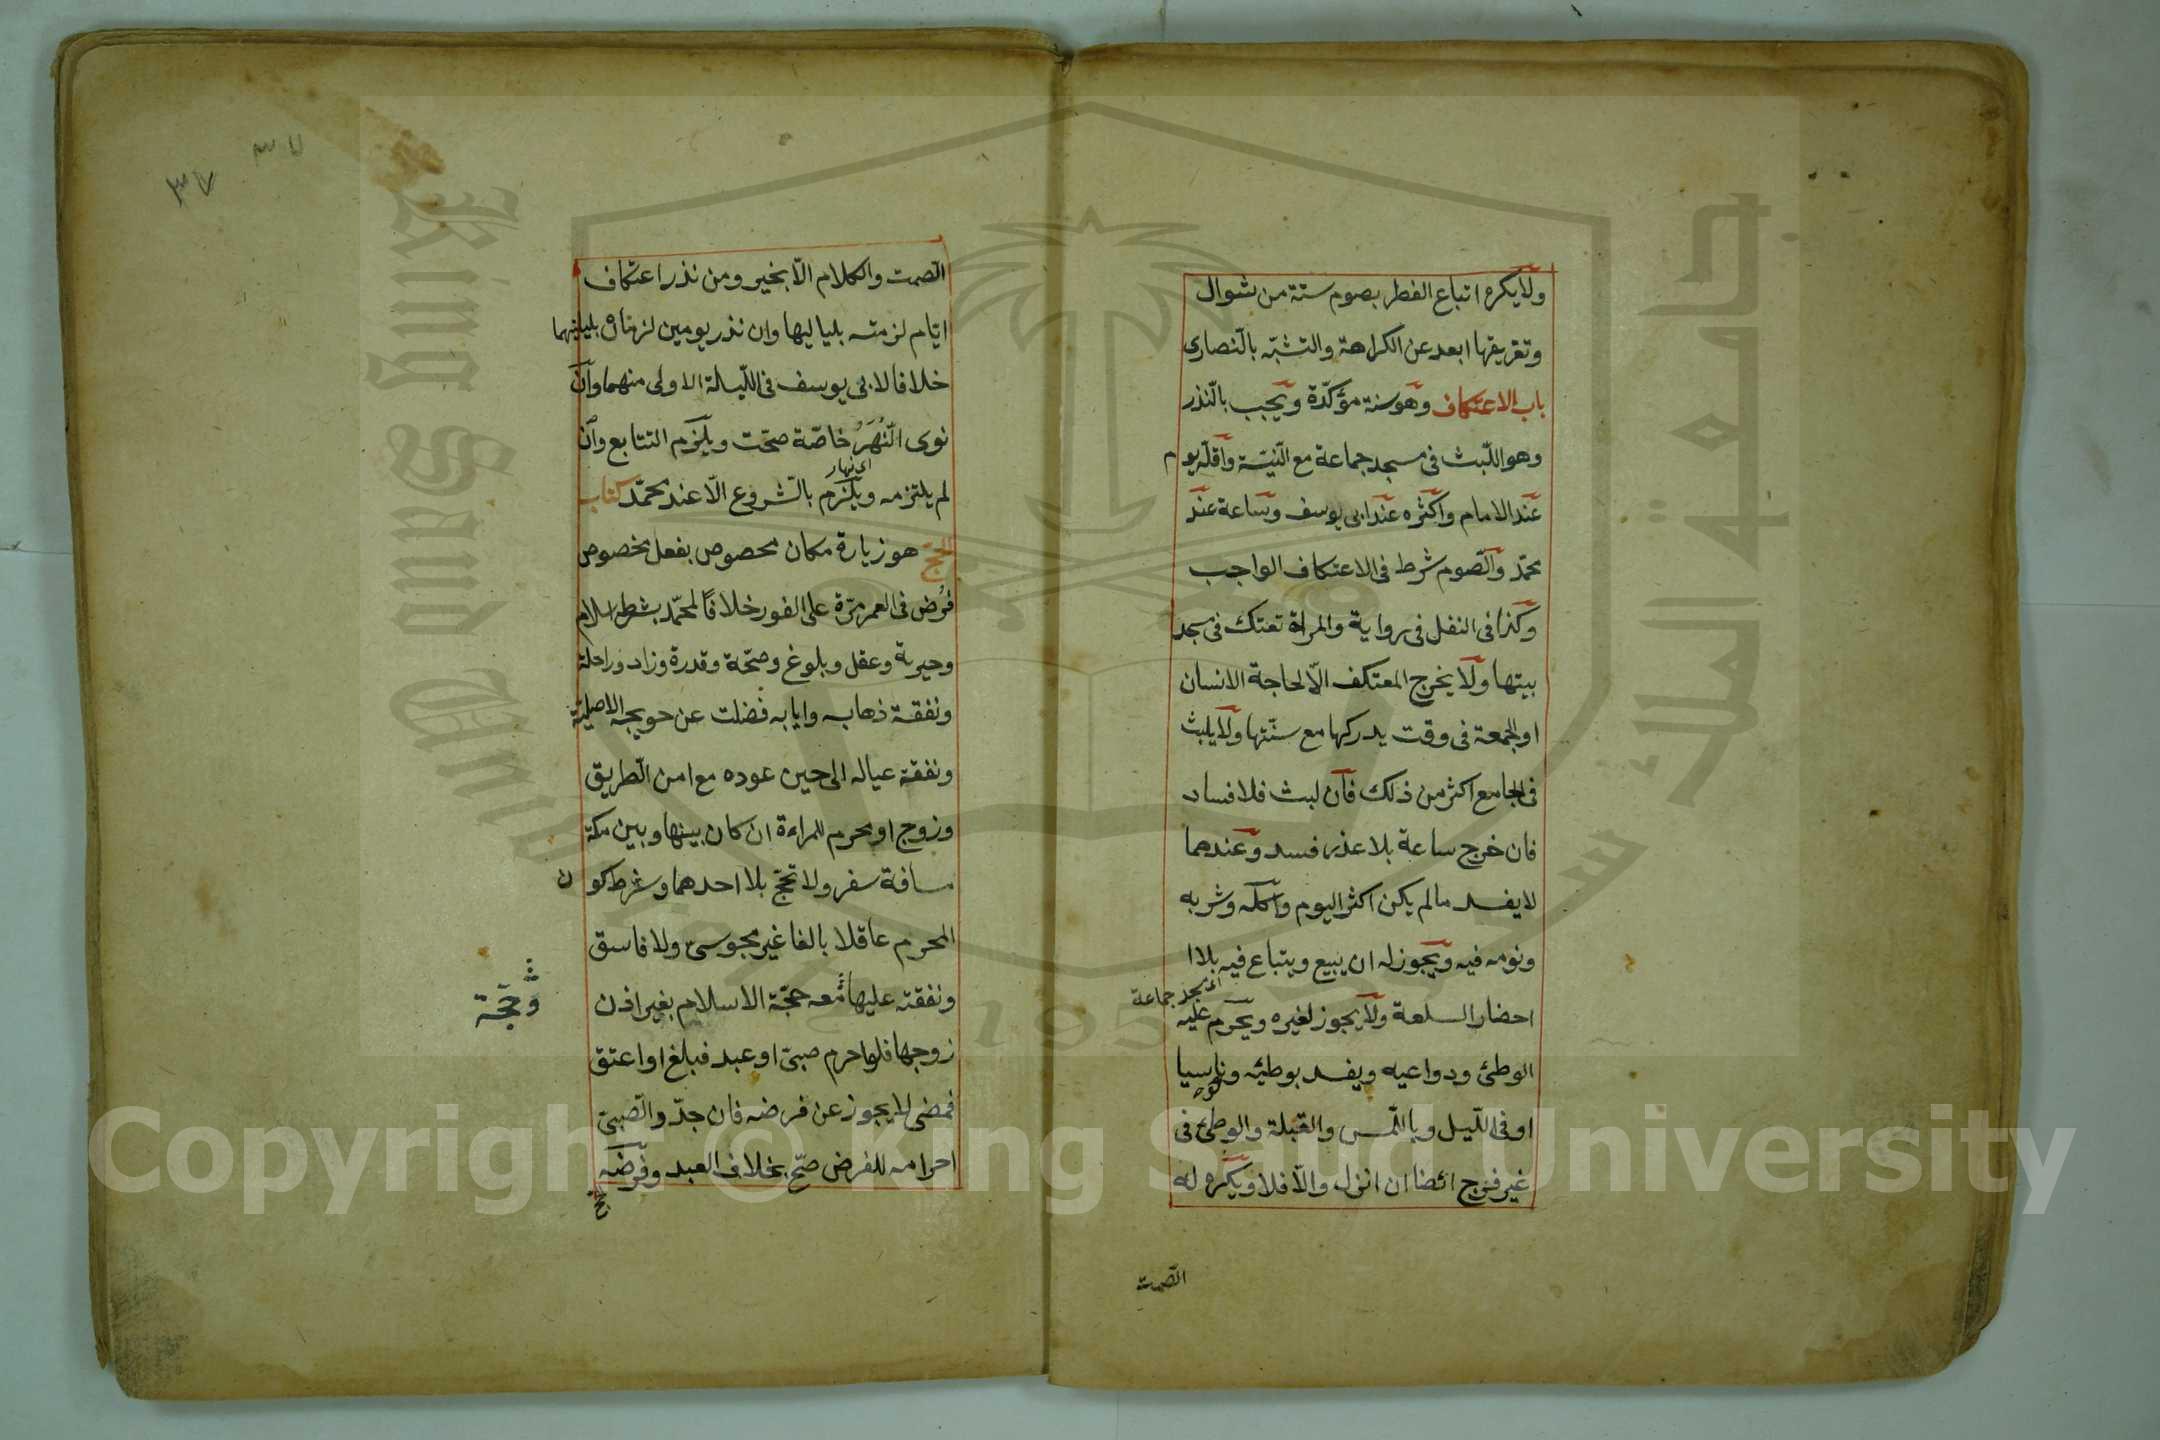 ولا يكره اتباع الفطر بصوم ستة من شوال
وتفريقها ابعد عن الكراهة والتشبّه بالنّصارى
باب الاعتكاف وهو سنة مؤكّدة ويجب بالنّذر
وهو اللّبث فى مسجد جماعة مع النّيّة واقلّه يوم
عند الامام واكثره عند ابى يوسف وساعة عند
محمّد والصّوم شرط فى الاعتكاف الواجب
وكذا فى النفل فى رواية والمراة تعتكف فى مسجد
بيتها ولا يخرج المعتكف الّا لحاجة الانسان
او الجمعة فى وقت يدركها مع سنّتها ولا يلبث
فى الجامع اكثر من ذلك فان لبث فلا فساد
فان خرج ساعة بلا عذر فسد وعندهما
لا يفسد مالم يكن اكثر اليوم واكله وشربه
ونومه فيه ويجوز له ان يبيع ويبتاع فيه بلا ا
اى مسجد جماعة
احضار السلعة ولا يجوز لغيره ويحرم عليه
الوطئ ودواعيه ويفسد بوطئه ولو ناسيا
او فى اللّيل وباللّمس والقبلة والوطئ فى
غير فرج ائضا ان انزل والّا فلا ويكره له
الصّمت
٣٧
٣٧
الصّمت والكلام الّا بخير ومن نذر اعتكاف
ايّام لزمته بلياليها وان نذر يومين لزماه بليلتهما
خلافا لابى يوسف فى اللّيلة الاولى منهما وان
نوى النُّهُرَ خاصّة صحّت ويلزم التتابع وان
اى نهار
لم يلتزمه ويلزم بالشّروع الّا عند محمّد كتاب
الحجّ هو زيارة مكان مخصوص بفعل مخصوص
فرض فى العمر مرّة على الفور خلافًا لمحمّد بشطر اسلام
وحيرية وعقل وبلوغ وصحّة وقدرة وزاد وراحلة
ونفقة ذهابه وايابه فضلت عن حويجه الاصليّة
ونفقة عياله الى حين عوده مع امن الطّريق
وزوج او محرم للمراءة ان كان بينها وبين مكة
مسافة سفر ولا تحجّ بلا احدهما وشرط كون
المحرم عاقلا بالغا غير مجوسىّ ولا فاسق
ونفقته عليها معه حجّة الاسلام بغير اذن
وَحَجّة
زوجها فلو احرم صبىّ او عبد فبلغ او اعتق
فمضى لا يجوز عن فرضه فان جدّد الصّبىّ
احرامه للفرض صحّ بخلاف العبد وفرضه
Copyright © King Saud University
جامعة الملك سعود
King Saud University
1957